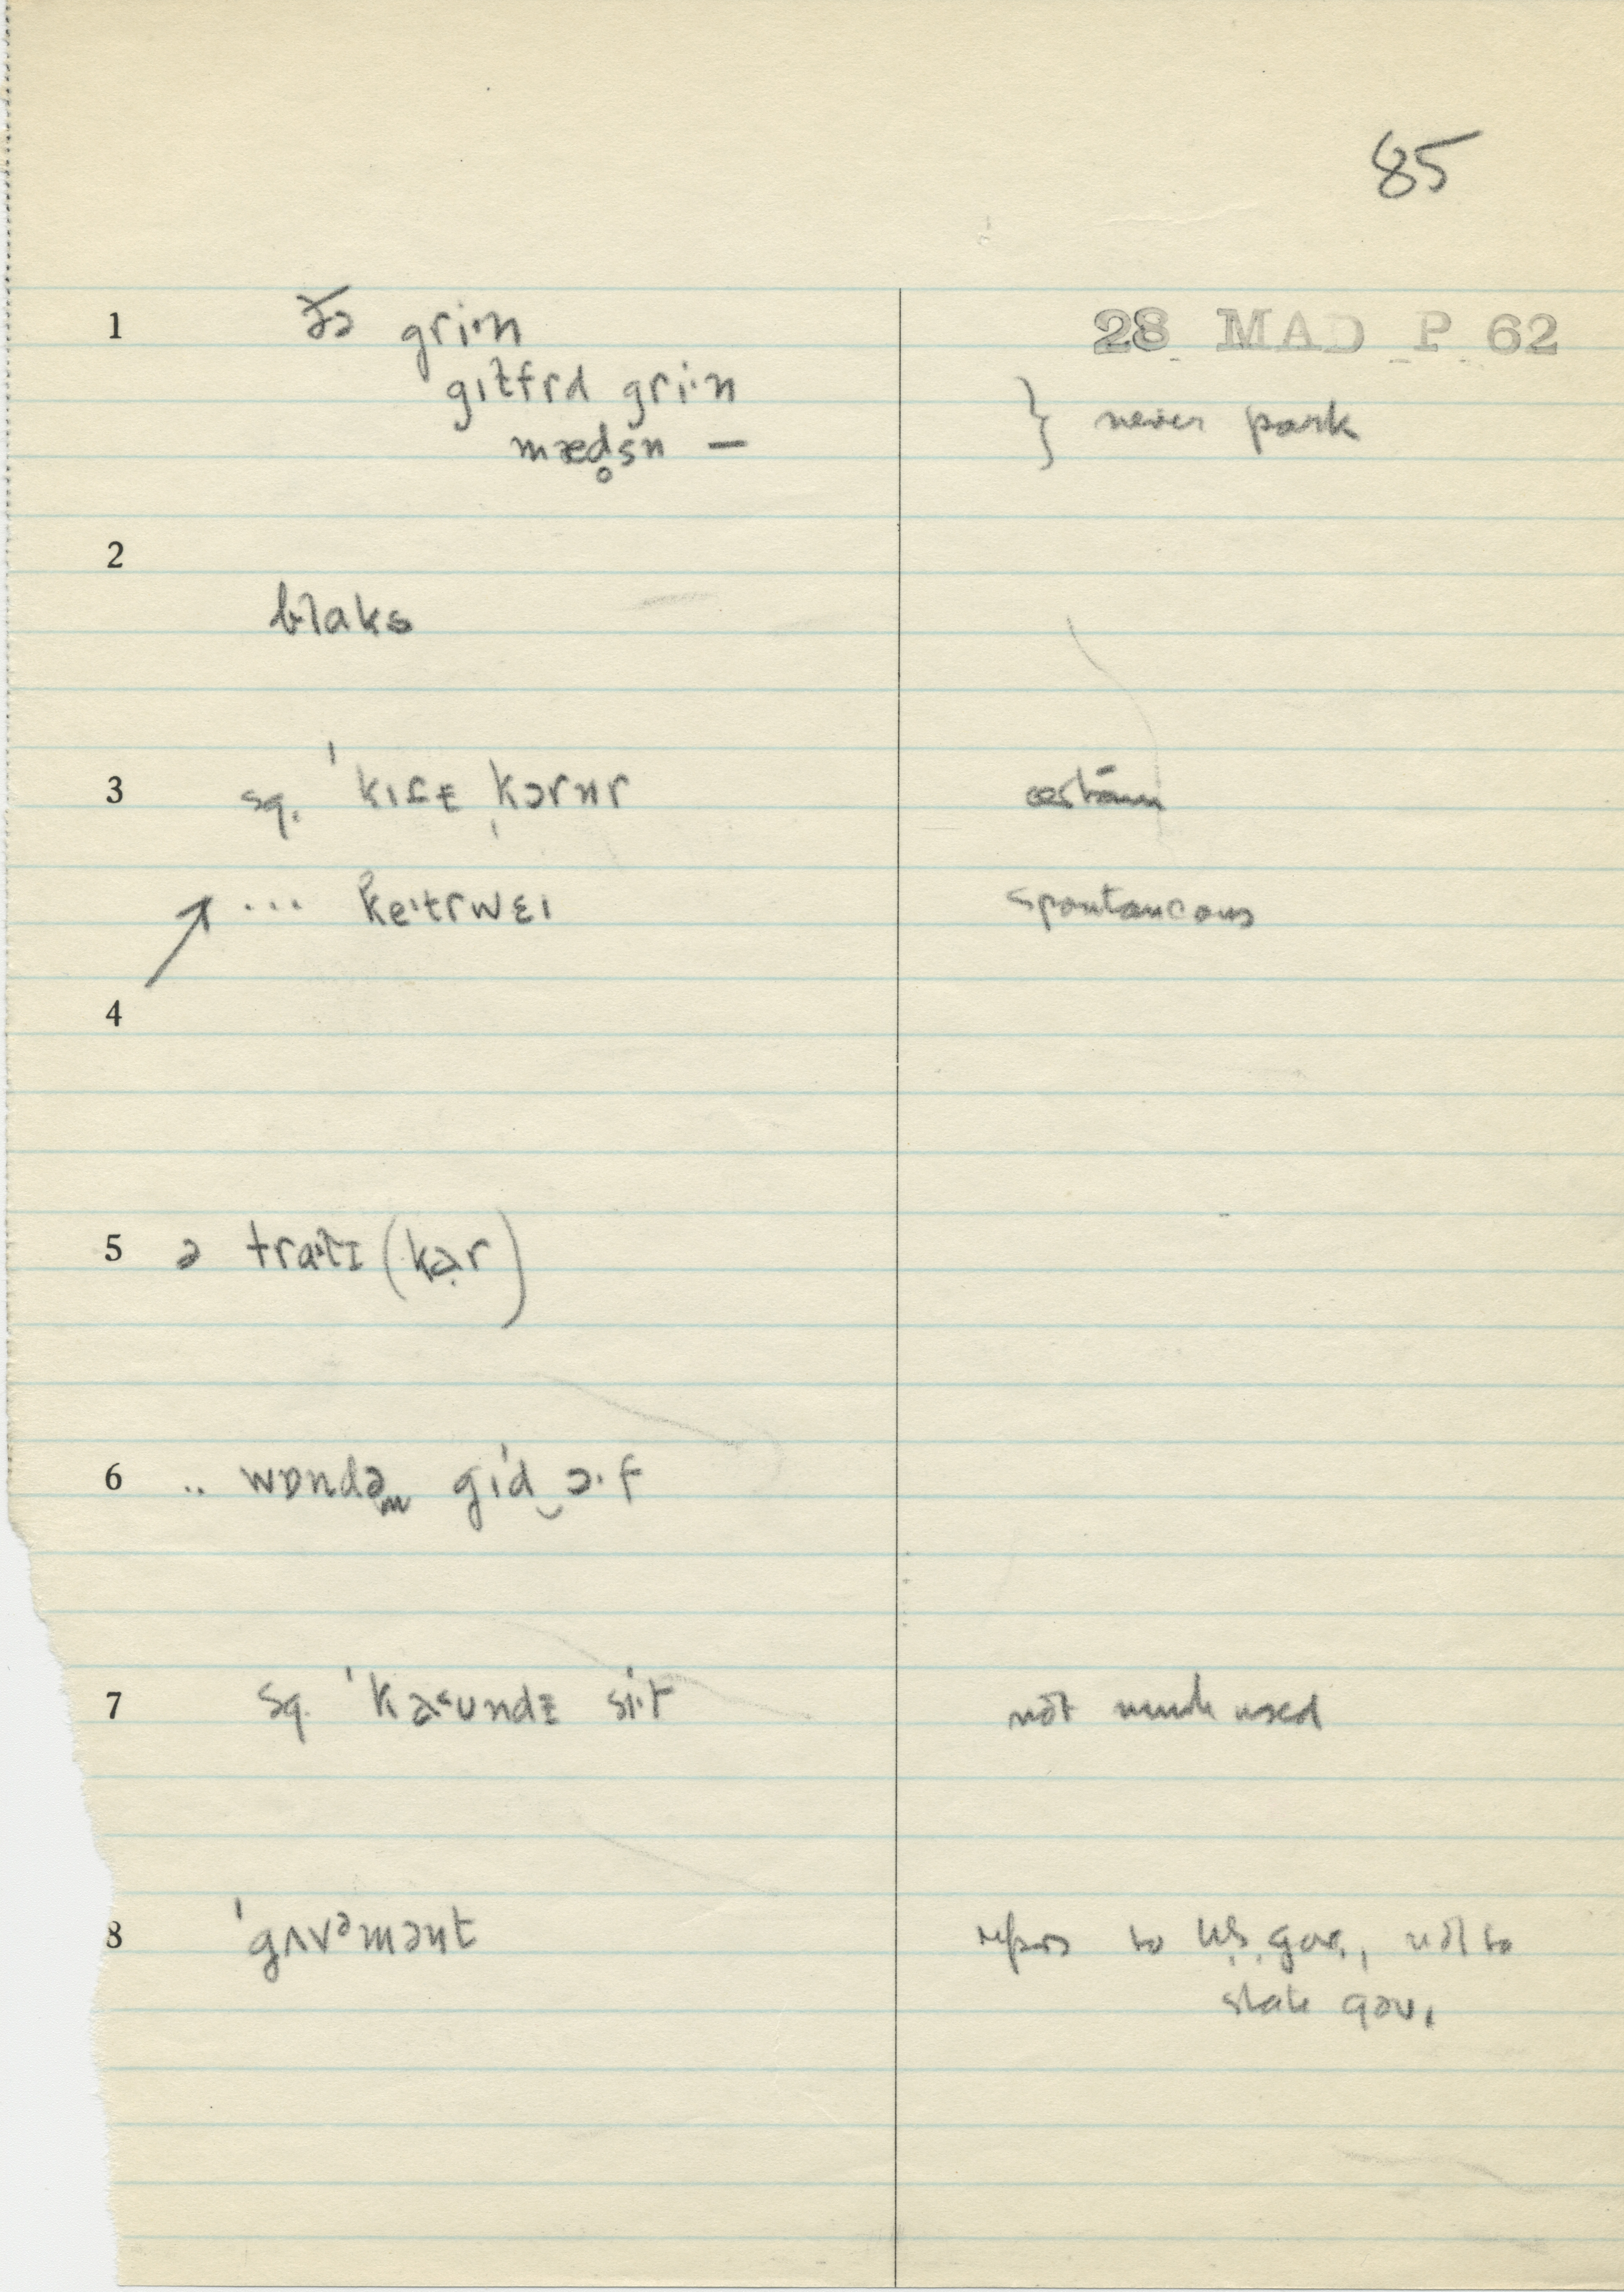 85
28 MAD P 62
1 ðə gri·n
gɪlfrd gri·n
mæd̥sn —
} never park
2
blaks
3 sq. ˈkɪtɪ ˌkɔrnr
... ke·trwɛɪ spontaneous
4
5 ə tra·lɪ (kar)
6 .. wɒndəm gɪd‿ɔ·f
7 sq. ˈkaundɪ si·t not much used
8 ˈgʌvəmənt refers to U.S. gov., not to
state gov.